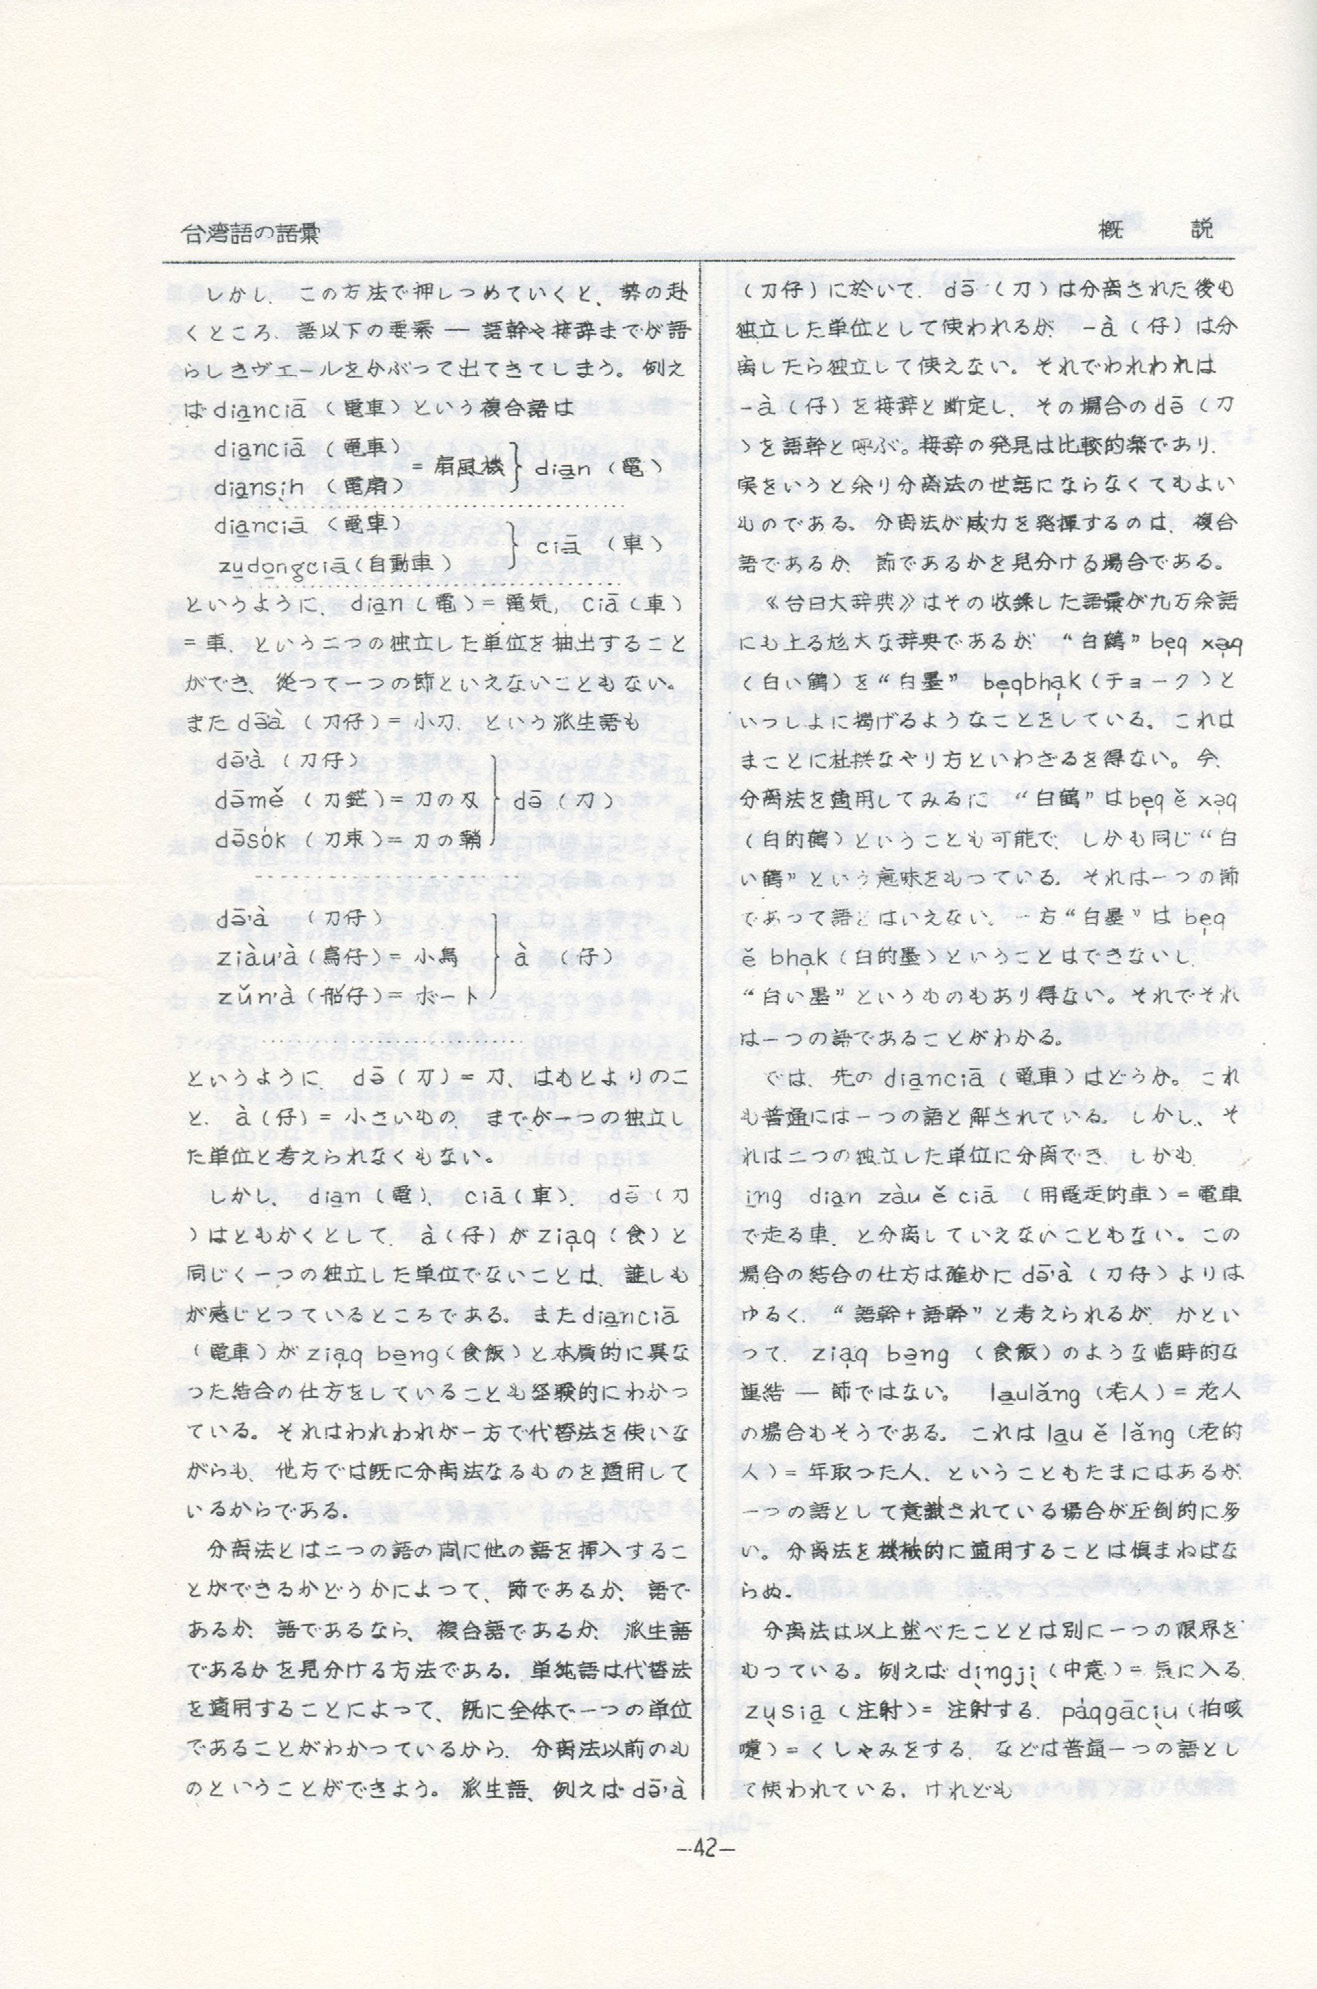 台湾語の語彙
概　　説
しかし、この方法で押しつめていくと、勢の赴
くところ、語以下の要素 — 語幹や接辞までが語
らしきヴエールをかぶって出てきてしまう。例え
ば dia̱nciā（電車）という複合語は
dia̱nciā（電車）
dia̱nsi̩h（電扇）＝扇風機 } dia̱n（電）
dia̱nciā（電車）
zu̱do̱ngciā（自動車） } ciā（車）
というように、dia̱n（電）＝電気，ciā（車）
＝車、という二つの独立した単位を抽出すること
ができ、従つて一つの節といえないこともない。
また də̄'à（刀仔）＝小刀、という派生語も
də̄'à（刀仔）
də̄mě（刀鋩）＝刀の刄
də̄sók（刀束）＝刀の鞘 } də̄（刀）
də̄'à（刀仔）
ziàu'à（鳥仔）＝小鳥
zǔn'à（船仔）＝ボート } à（仔）
というように、də̄（刀）＝刀、はもとよりのこ
と、à（仔）＝小さいもの、までが一つの独立し
た単位と考えられなくもない。
しかし、dia̱n（電）、ciā（車）、də̄（刀
）はともかくとして、à（仔）が zia̩q（食）と
同じく一つの独立した単位でないことは、誰しも
が感じとつているところである。また dia̱nciā
（電車）が zia̩q bə̱ng（食飯）と本質的に異な
つた結合の仕方をしていることも経験的にわかつ
ている。それはわれわれが一方で代替法を使いな
がらも、他方では既に分离法なるものを適用して
いるからである。
分离法とは二つの語の间に他の語を挿入するこ
とができるかどうかによつて、節であるか、語で
あるか、語であるなら、複合語であるか、派生語
であるかを見分ける方法である。単純語は代替法
を適用することによつて、既に全体で一つの単位
であることがわかつているから、分离法以前のも
のということができよう。派生語、例えば də̄'à
（刀仔）に於いて、də̄（刀）は分离された後も
独立した単位として使われるが、-à（仔）は分
离したら独立して使えない。それでわれわれは
-à（仔）を接辞と断定し、その場合の də̄（刀
）を語幹と呼ぶ。接辞の発見は比較的楽であり、
実をいうと余り分离法の世話にならなくてもよい
ものである。分离法が威力を発揮するのは、複合
語であるか、節であるかを見分ける場合である。
《台日大辞典》はその收錄した語彙が九万余語
にも上る尨大な辞典であるが、“白鶴” be̩q xə̩q
（白い鶴）を“白墨” be̩qbha̩k（チョーク）と
いつしよに掲げるようなことをしている。これは
まことに杜撰なやり方といわざるを得ない。今、
分离法を適用してみるに、“白鶴”は be̩q ě xə̩q
（白的鶴）ということも可能で、しかも同じ“白
い鶴”という意味をもつている。それは一つの節
であつて語とはいえない。一方“白墨”は be̩q
ě bha̩k（白的墨）ということはできないし、
“白い墨”というものもあり得ない。それでそれ
は一つの語であることがわかる。
では、先の dia̱nciā（電車）はどうか。これ
も普通には一つの語と解されている。しかし、そ
れは二つの独立した単位に分离でき、しかも、
i̱ng dia̱n zàu ě ciā（用電走的車）＝電車
で走る車、と分离していえないこともない。この
場合の結合の仕方は確かに də̄'à（刀仔）よりは
ゆるく、“語幹＋語幹”と考えられるが、かとい
つて、zia̩q bə̱ng（食飯）のような臨時的な
連結 — 節ではない。la̱ulǎng（老人）＝老人
の場合もそうである。これは la̱u ě lǎng（老的
人）＝年取つた人、ということもたまにはあるが、
一つの語として意識されている場合が圧倒的に多
い。分离法を機械的に適用することは慎まねばな
らぬ。
分离法は以上述べたこととは別に一つの限界を
もつている。例えば di̩ngji̩（中意）＝気に入る、
zu̩sia̱（注射）＝注射する、páqgāci̩u（拍咳
嚏）＝くしゃみをする、などは普通一つの語とし
て使われている。けれども
—42—